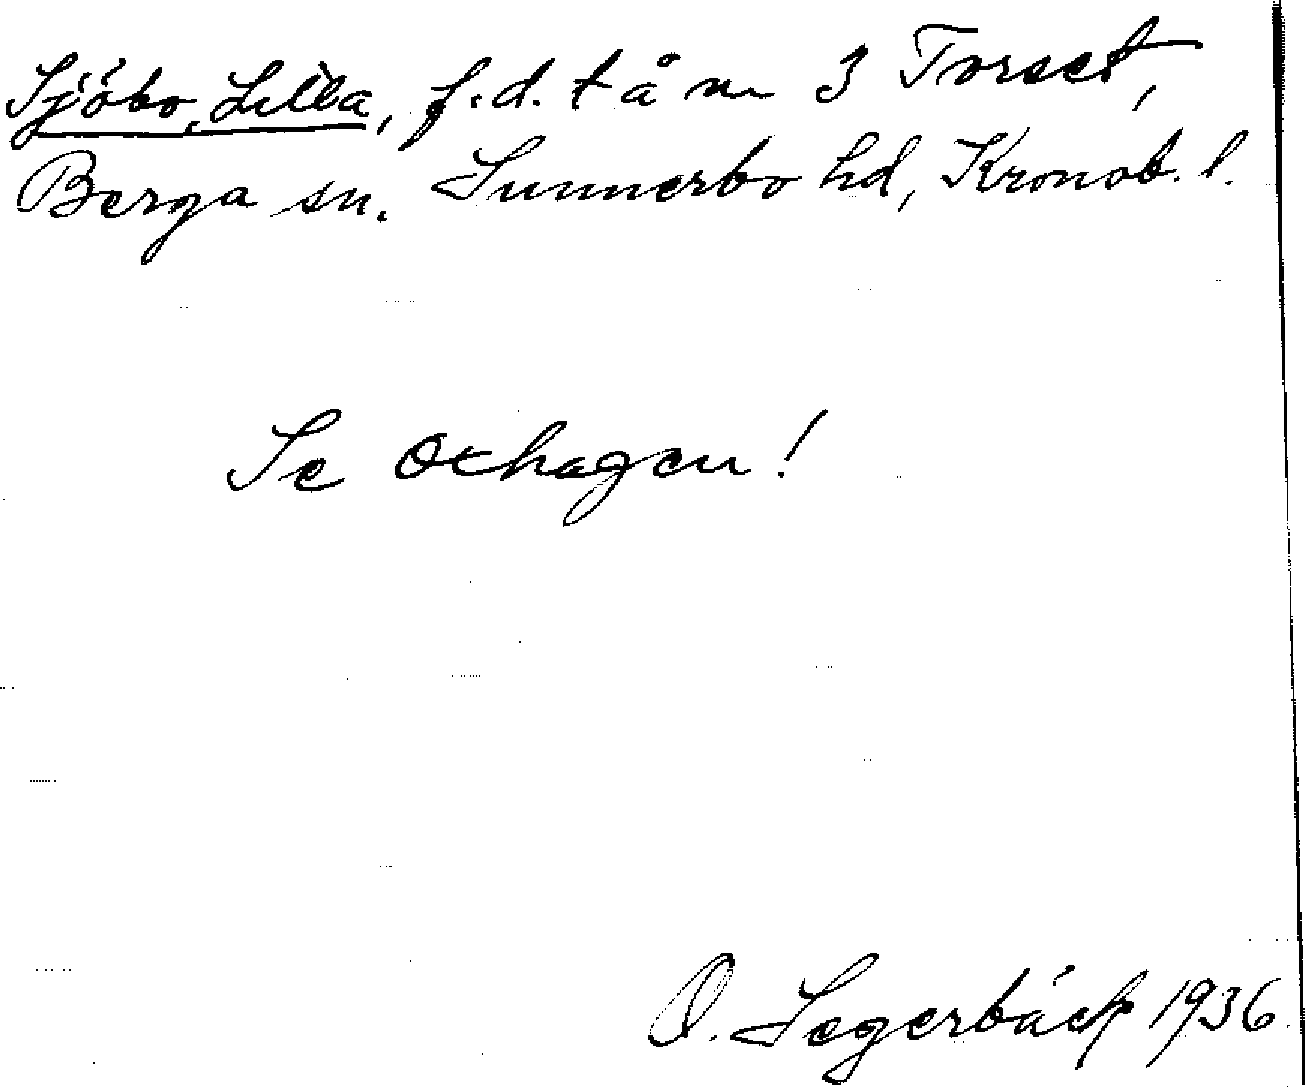 Sjöbo, Lilla, f.d. t å n 3 Torset,
Berga sn. Sunnerbo hd, Kronob. l.
Se Oxhagen!
O. Segerbäck 1936